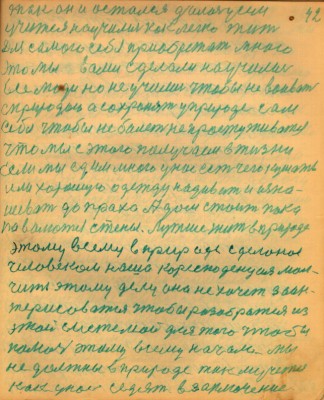 учится научились как легко жить
для самого себя приобретать много
это мы вами сделали научились
все люди но не учились чтобы не воевать
с природою а сохранять у природе сам
себя чтобы не болеть не простуживать
что мы с этого получаем в жизни
если мы едим много у нас есть чего кушать
им хорошую одежду надивать и изно-
шевать до праха А дом стоит пока
по валются стены. Лутше жить в природе
этому всему в природе сделано
человеком наша коресподенция мол-
чить этому делу она не хочет заин-
терисоватся чтобы розобратся из
этой системой для того чтобы
помоч этому всему началу мы
не должны в природе так мучится
как у нас седят в заключение
42